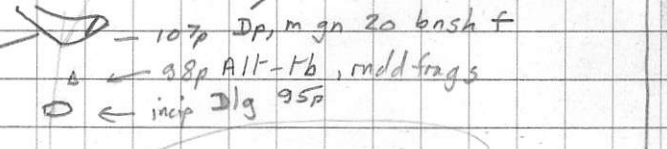 107p Dp, m gn 20 bnsh f
98p Alt-tb, mdd frags
incip Dlg 95p